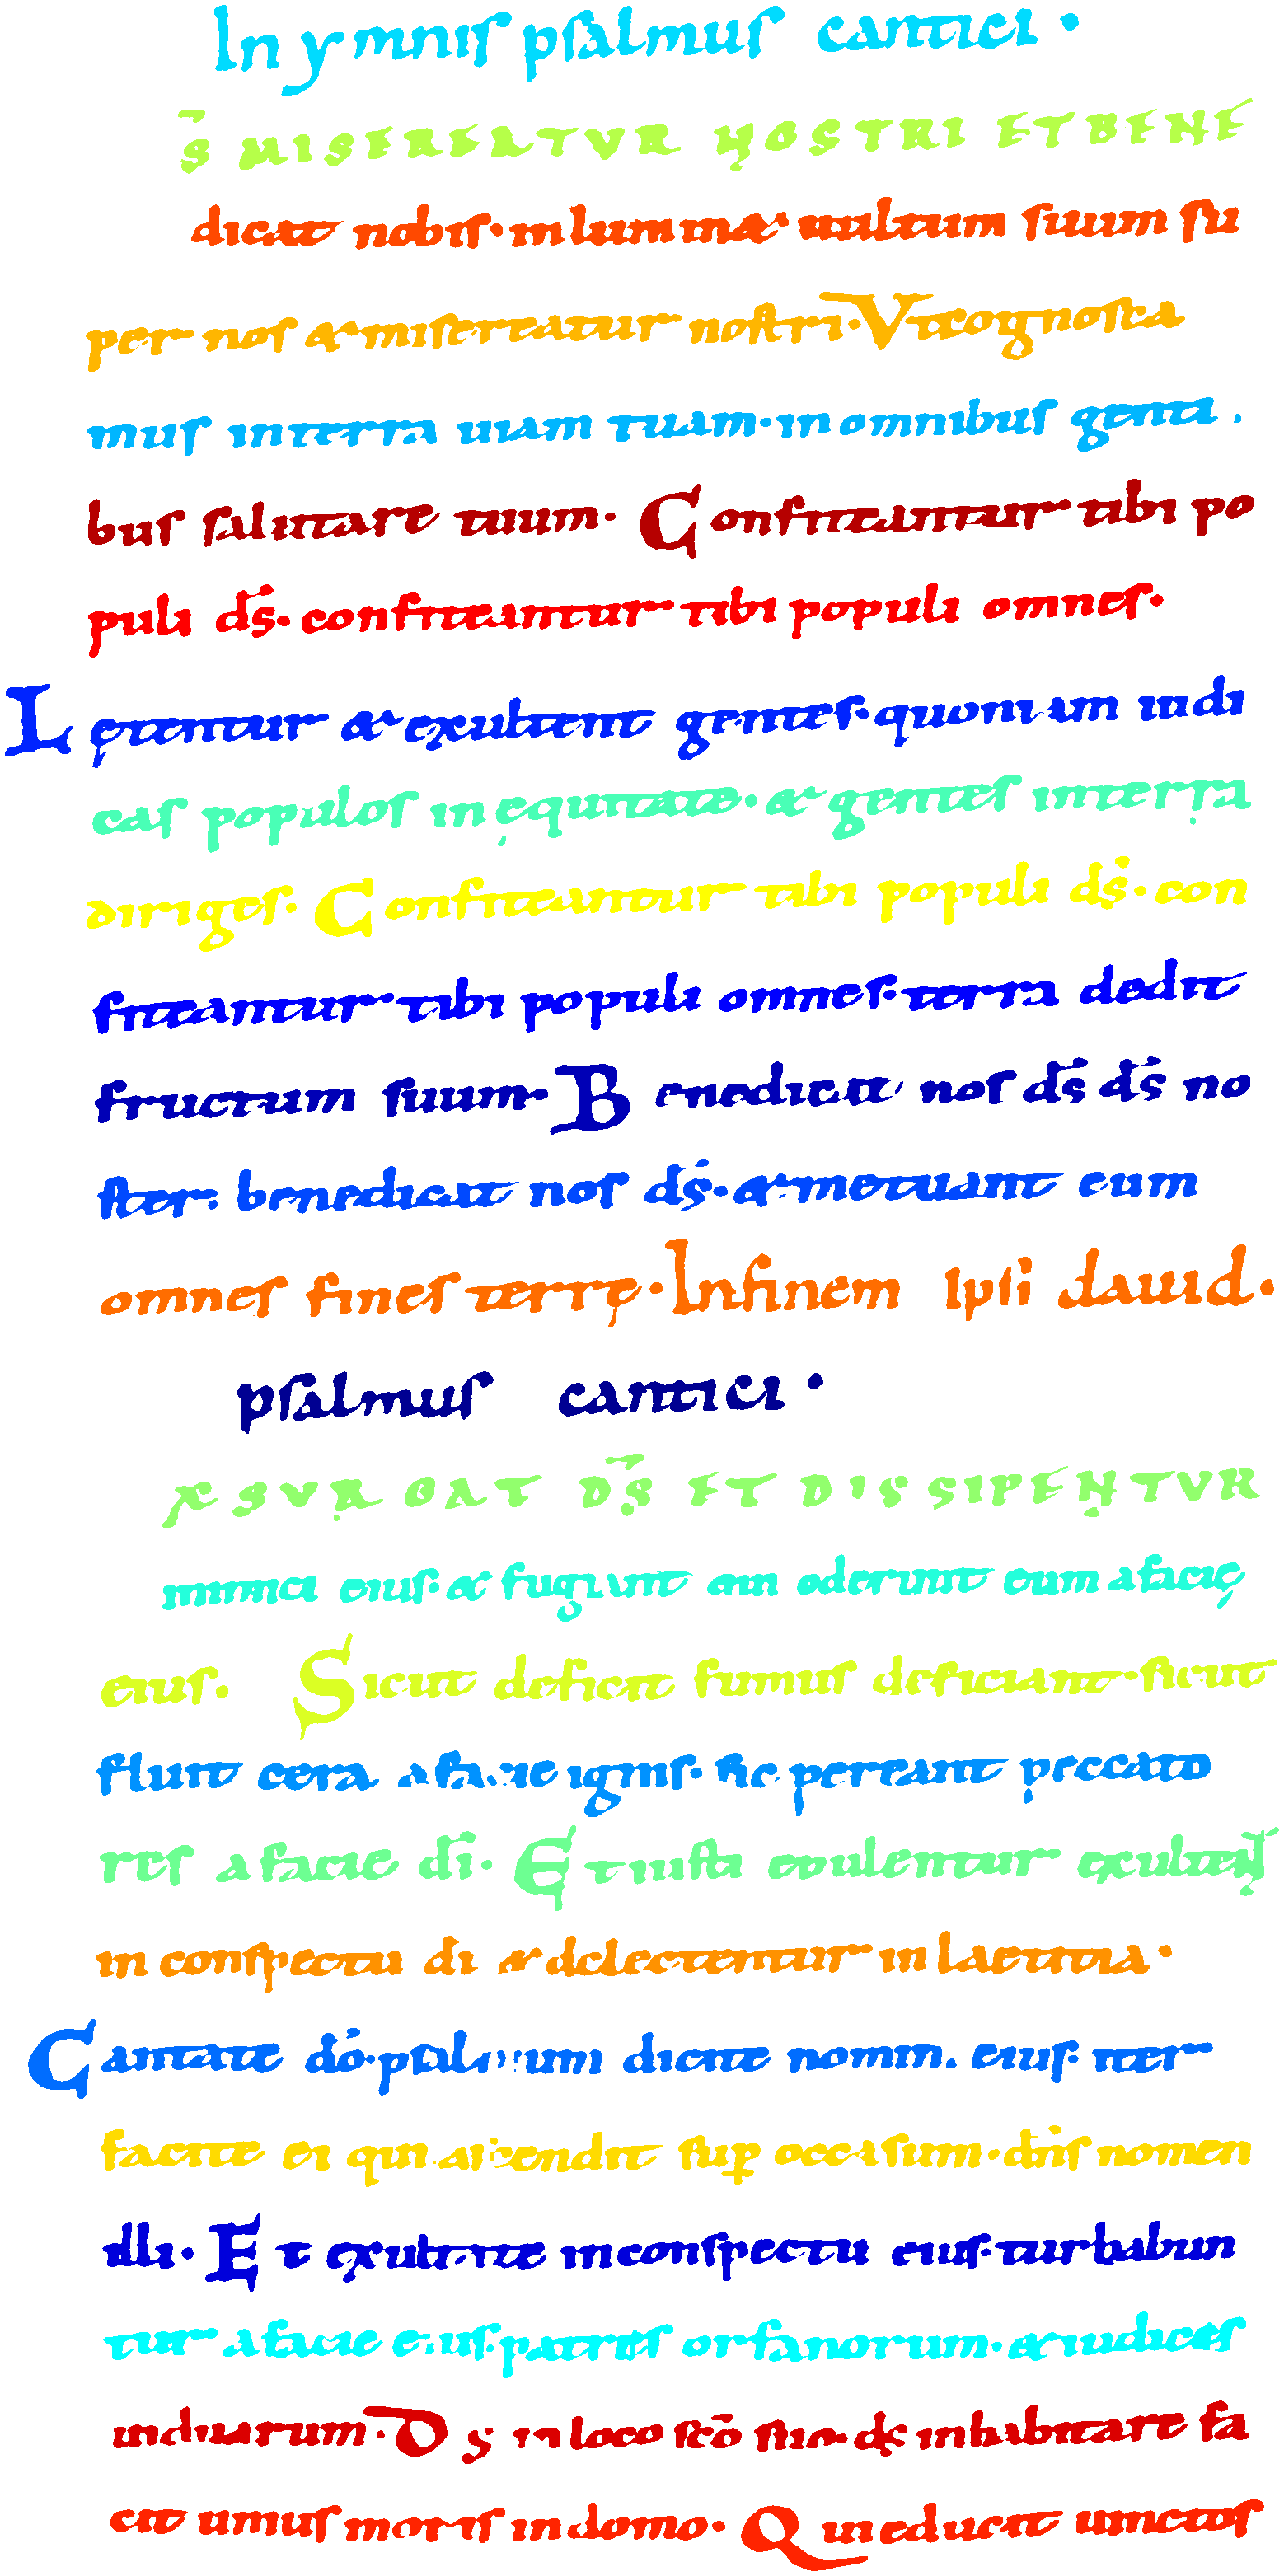 In ymnis psalmus cantici ·
S̄ MISEREATVR NOSTRI ET BENE
dicat nobis · inluminet uultum suum su
per nos & misereatur nostri · Vt cognosca
mus interra uiam tuam · in omnibus genti
bus salutare tuum · Confiteantur tibi po
puli d̄s · confiteantur tibi populi omnes ·
Lętentur & exultent gentes · quoniam iudi
cas populos in ęquitate · & gentes interra
diriges · Confiteantur tibi populi d̄s · con
fiteantur tibi populi omnes · terra dedit
fructum suum · Benedicat nos d̄s d̄s no
ster · benedicat nos d̄s · & metuant eum
omnes fines terrę · Infinem Ipsi dauid ·
psalmus cantici ·
EXSVRGAT D̄S ET DISSIPENTVR
inimici eius · & fugiant qui oderunt eum afacię
eius · Sicut deficit fumus deficiant · sicut
fluit cera afacie ignis · sic pereant peccato
res afacie d̄i · Et iusti epulentur exulteñ
in conspectu di & delectentur in laetitia ·
Cantate d̄o · psalmum dicite nomini eius · iter
facite ei qui ascendit sup̱ occasum · dn̄s nomen
illi · Et exultate inconspectu eius · turbabun
tur afacie eius · patris orfanorum · & iudices
uiduarum · Ds in loco sc̄o suo · ds inhabitare fa
cit unius moris in domo · Qui educit uinctos